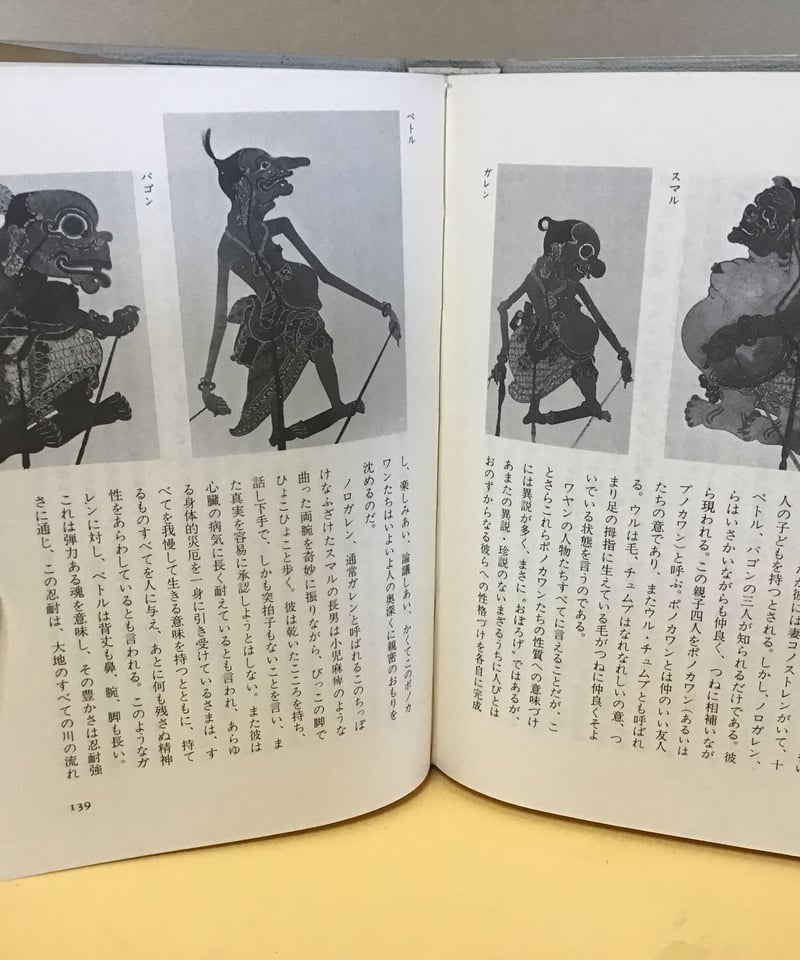 スマル
ガレン
だが彼には妻コノストレンがいて、十
人の子どもを持つとされる。しかし、ノロガレン、
ペトル、バゴンの三人が知られるだけである。彼
らはいさかいながらも仲良く、つねに相補いなが
ら現われる。この親子四人をポノカワン(あるいは
プノカワン)と呼ぶ。ポノカワンとは仲のいい友人
たちの意であり、またウル・チュムプとも呼ばれ
る。ウルは毛、チュムプはなれなれしいの意、つ
まり足の拇指に生えている毛がつねに仲良くそよ
いでいる状態を言うのである。
ワヤンの人物たちすべてに言えることだが、こ
とさらこれらポノカワンたちの性質への意味づけ
には異説が多く、まさに〝おぼろげ〟ではあるが、
あまたの異説・珍説のないまざるうちに人びとは
おのずからなる彼らへの性格づけを各自に完成
ペトル
バゴン
し、楽しみあい、論議しあい、かくてこのポノカ
ワンたちはいよいよ人の奥深くに親密のおもりを
沈めるのだ。
ノロガレン、通常ガレンと呼ばれるこのちっぽ
けなふざけたスマルの長男は小児麻痺のような
曲った両腕を奇妙に振りながら、びっこの脚で
ひょこひょこと歩く。彼は乾いたこころを持ち、
話し下手で、しかも突拍子もないことを言い、ま
た真実を容易に承認しようとはしない。また彼は
心臓の病気に長く耐えているとも言われ、あらゆ
る身体的災厄を一身に引き受けているさまは、す
べてを我慢して生きる意味を持つとともに、持て
るものすべてを人に与え、あとに何も残さぬ精神
性をあらわしているとも言われる。このようなガ
レンに対し、ペトルは背丈も鼻、腕、脚も長い。
これは弾力ある魂を意味し、その豊かさは忍耐強
さに通じ、この忍耐は、大地のすべての川の流れ
139